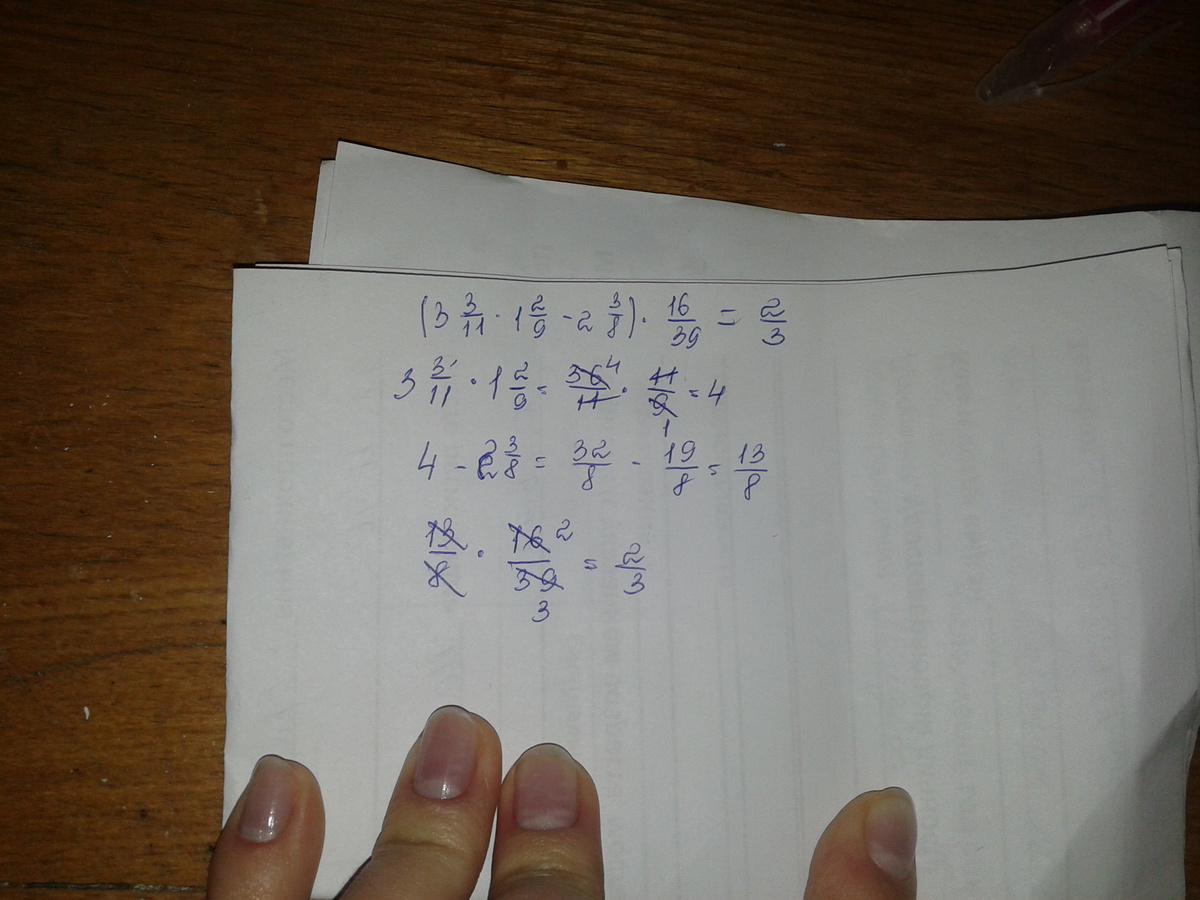 (3 3/11 · 1 2/9 - 2 3/8) · 16/39 = 2/3
3 3/11 · 1 2/9 = 36/11 4 · 11/9 1 = 4
4 - 2 3/8 = 32/8 - 19/8 = 13/8
13/8 · 16/39 2 3 = 2/3